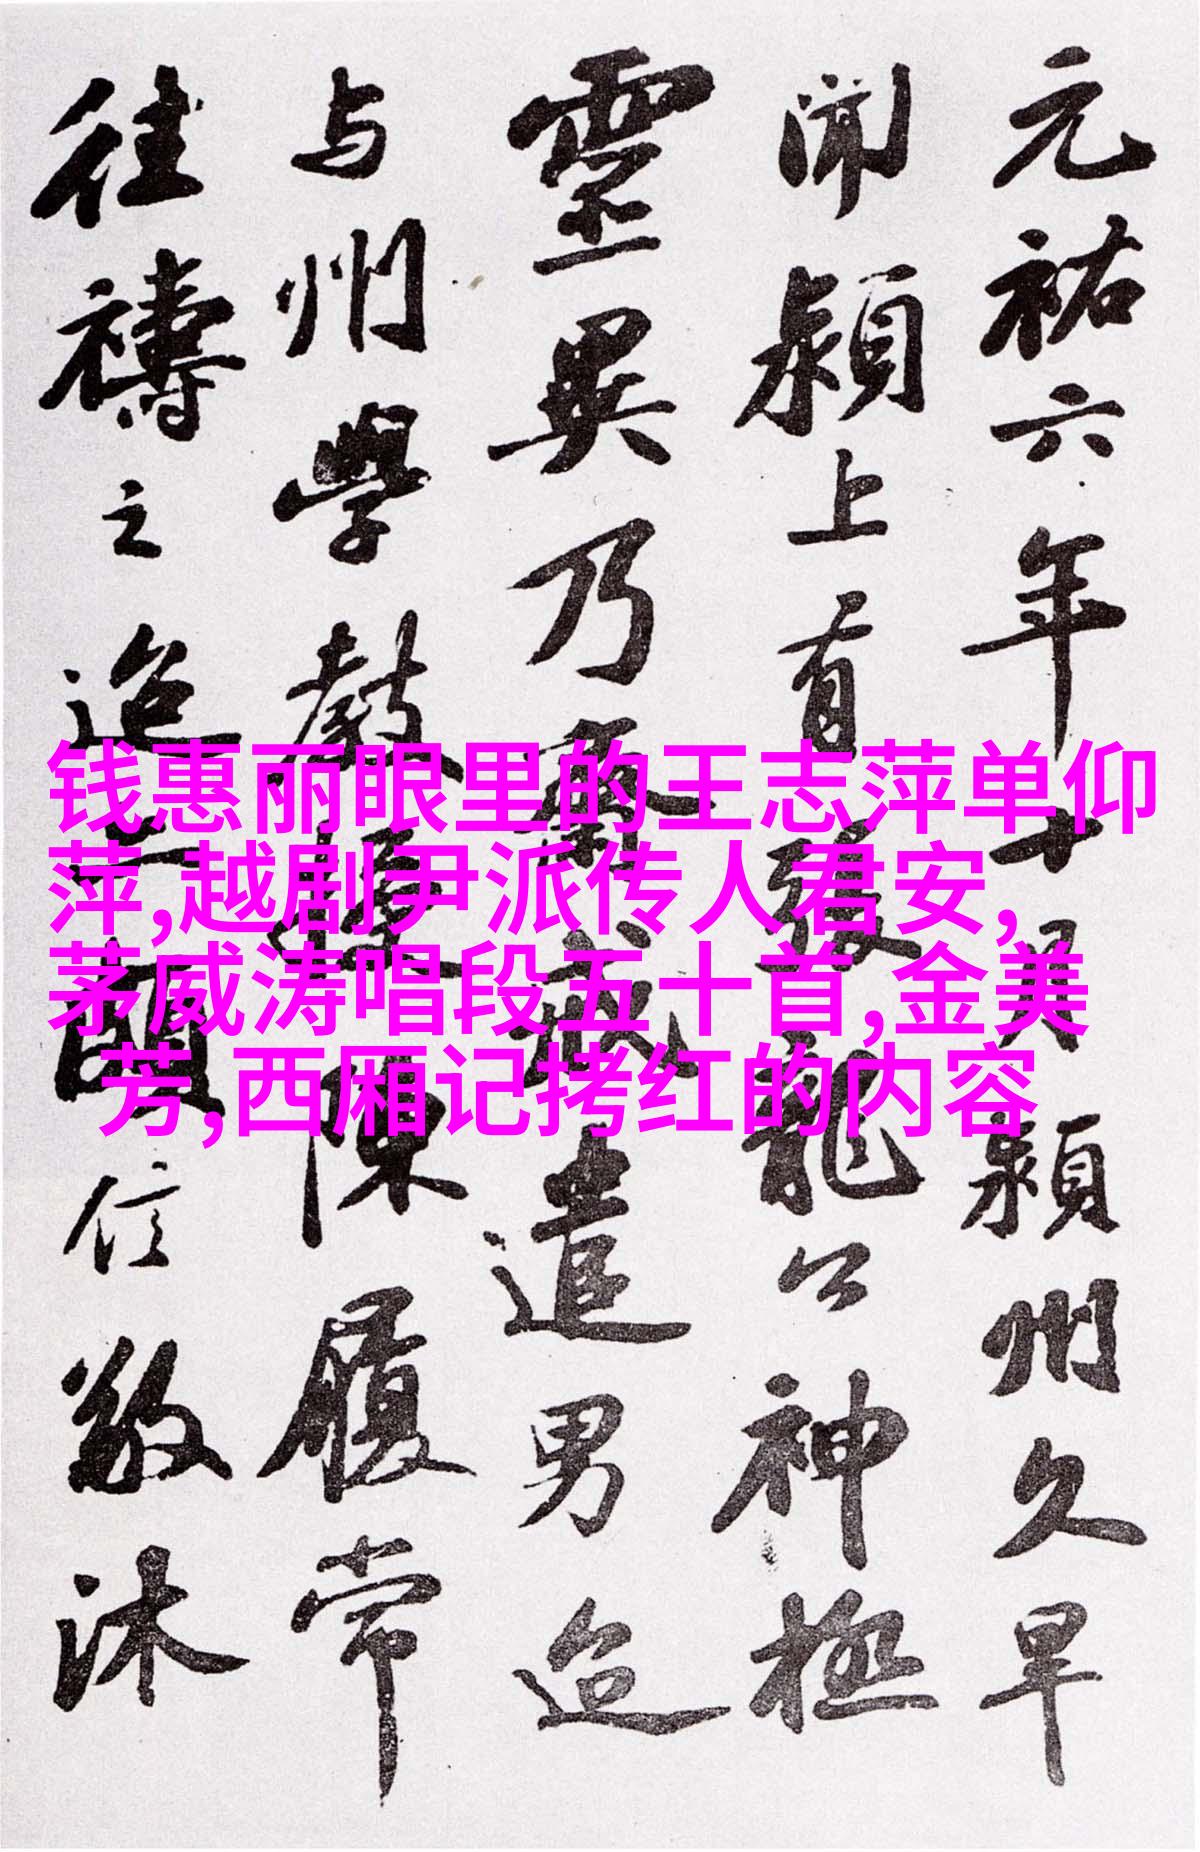 元祐六年十月潁州久旱
聞潁上有張龍公神極
靈異乃齋戒遣男迨
与州學教授陳履常
往禱之迨亦頗信敬沐
钱惠丽眼里的王志萍单仰
萍,越剧尹派传人君安,
茅威涛唱段五十首,金美
芳,西厢记拷红的内容